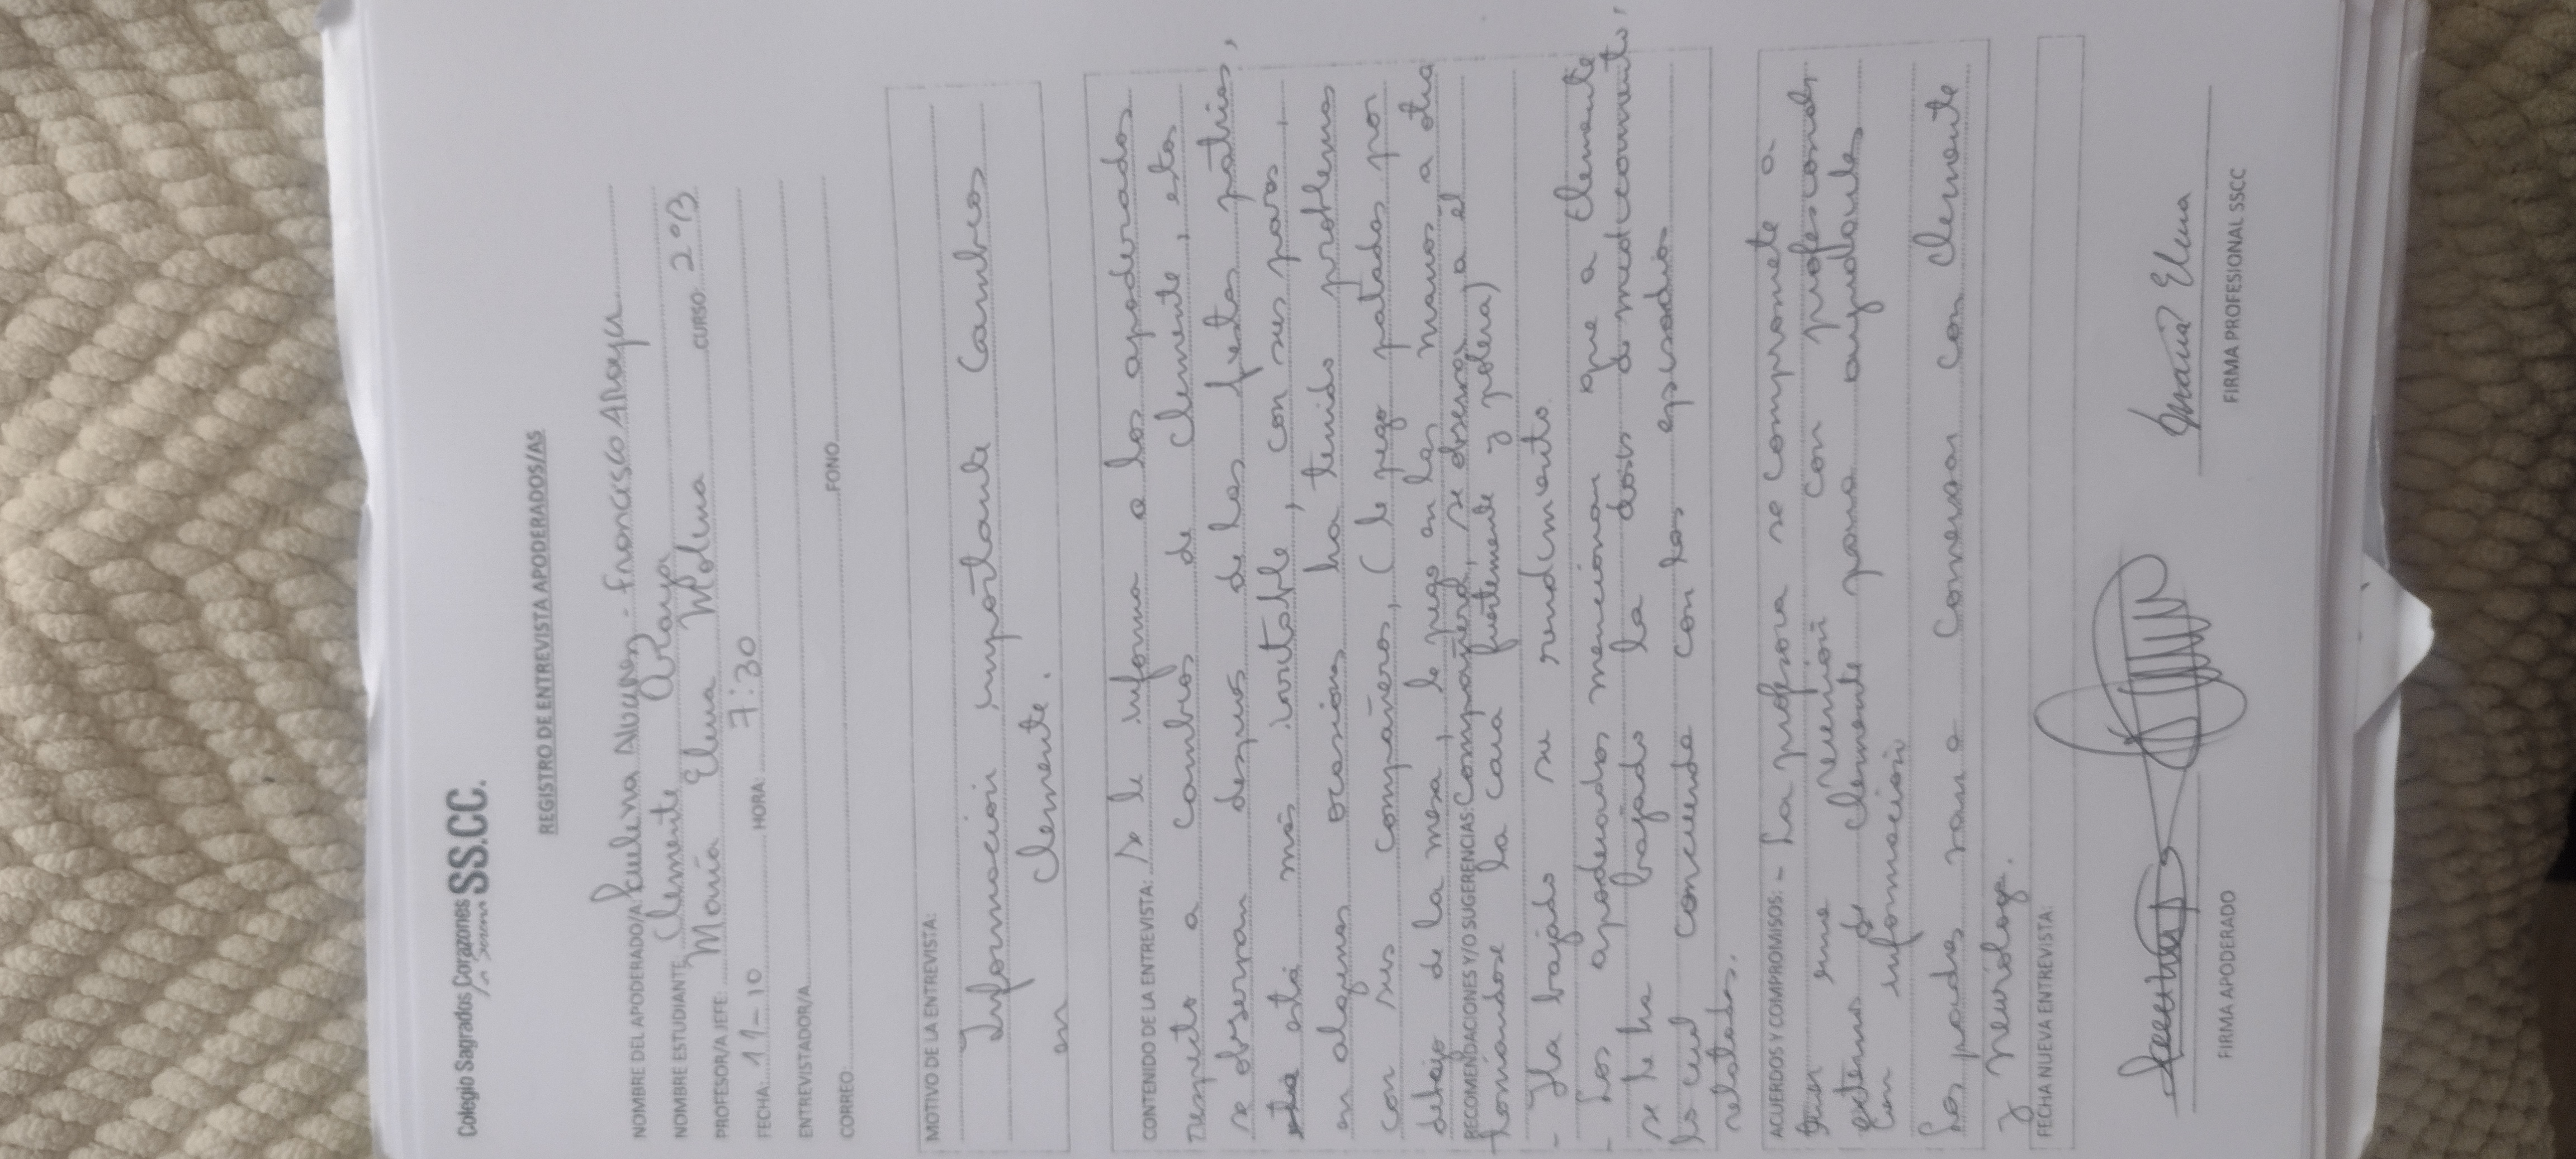 Colegio Sagrados Corazones SS.CC.
REGISTRO DE ENTREVISTA APODERADOS/AS
NOMBRE DEL APODERADO/A: Paulina - Francisco Araya
NOMBRE ESTUDIANTE Clemente Araya
PROFESOR/A JEFE: María Elena Molina CURSO: 2°B
FECHA: 11-10 HORA: 7:30
ENTREVISTADOR/A
CORREO: FONO
MOTIVO DE LA ENTREVISTA:
Información importante Cambios
en Clemente.
CONTENIDO DE LA ENTREVISTA: Se le informa a los apoderados
respecto a cambios de Clemente, estos
se observan después de las fiestas patrias,
está más irritable, con sus pares,
en algunas ocasiones ha tenido problemas
con sus compañeros, (le pego patadas por
debajo de la mesa, le pego en las manos a otra
RECOMENDACIONES Y/O SUGERENCIAS: compañera, se observa a él
tomándose la cara fuertemente y polera)
- Ha bajado su rendimiento.
- Los apoderados mencionan que a Clemente
se le ha bajado la dosis de medicamento,
lo cual concuerda con los episodios
relatados.
ACUERDOS Y COMPROMISOS: - La profesora se compromete a
tener una reunión con profesionales
externos de Clemente para ayudarles
con información
Los padres van a conversar con Clemente
y neuróloga.
FECHA NUEVA ENTREVISTA:
María Elena
FIRMA APODERADO FIRMA PROFESIONAL SSCC